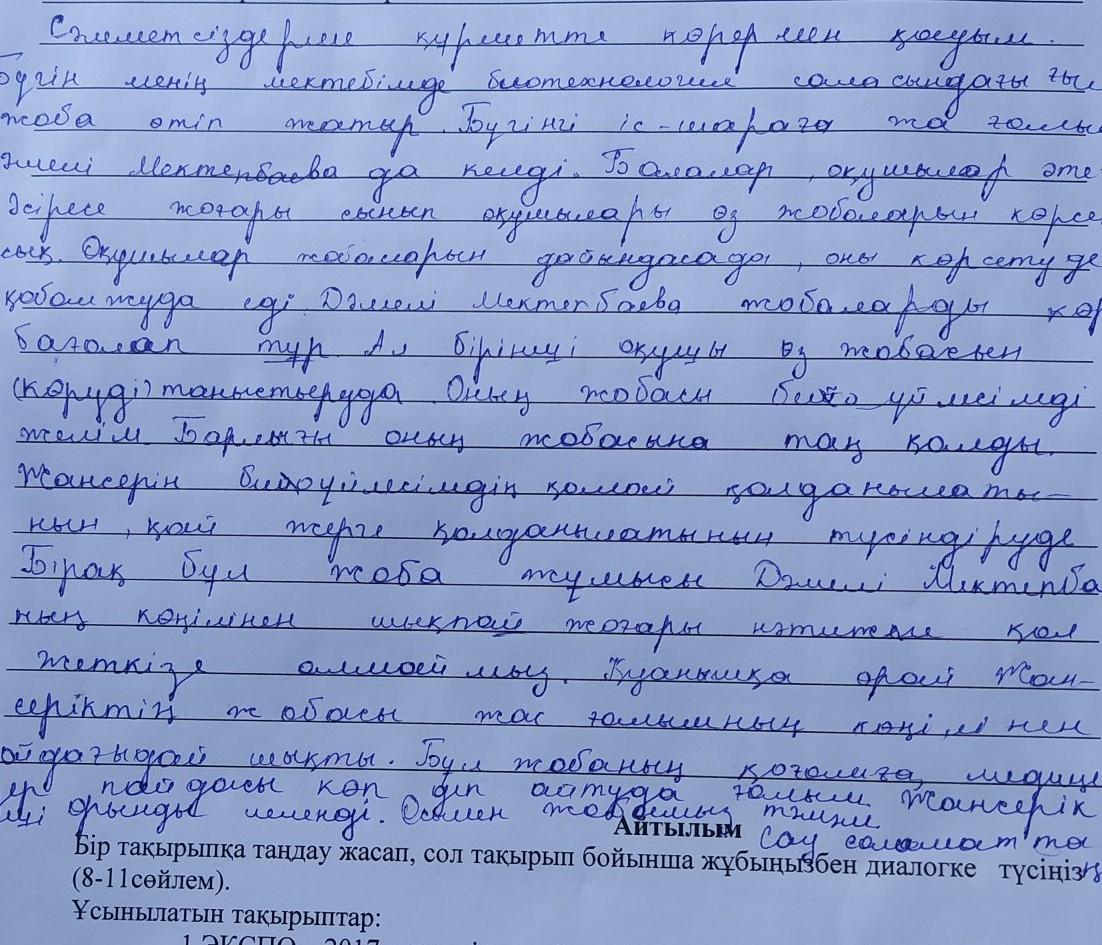 Сәлеметсіздерме құрметте көрермен қауым.
Бүгін менің мектебімде биотехнология саласындағы ғы
жоба өтіп жатыр. Бүгінгі іс-шараға жа ғалы
Дәмелі Мектепбаева да келді. Балалар, оқушылар өте
Әсіресе жоғары сынып оқушылары өз жобаларын көрсе
сық. Оқушылар жобаларын дайындасада, оны көрсетуде
қобалжуда еді. Дәмелі Мектепбаева жобаларды көр
бағалап тұр. Ал бірінші оқушы өз жобасын
(көруді) таныстыруда. Оның жобасы био үйлесімді
желім. Барлығы оның жобасына таң қалды.
Жансерік биоүйлесімдің қалай қолданылаты-
нын, қай жерге қолданылатынын түсіндіруде
Бірақ бұл жоба жұмысы Дәмелі Мектепба
ның көңілінен шықпай жоғары нәтижеге қол
жеткізе алмаймыз. Қуанышқа орай Жан-
серіктің жобасы жас ғалымның көңілінен
ойдағыдай шықты. Бұл жобаның қоғамға, медице
пайдасы көп деп айтуда ғалым. Жансерік
орынды иеленді. Осымен жобамыз тәмам.
Сау саламатта
Айтылым
Бір тақырыпқа таңдау жасап, сол тақырып бойынша жұбыңызбен диалогке түсіңіз
(8-11сөйлем).
Ұсынылатын тақырыптар:
1.ЭКСПО - 2017